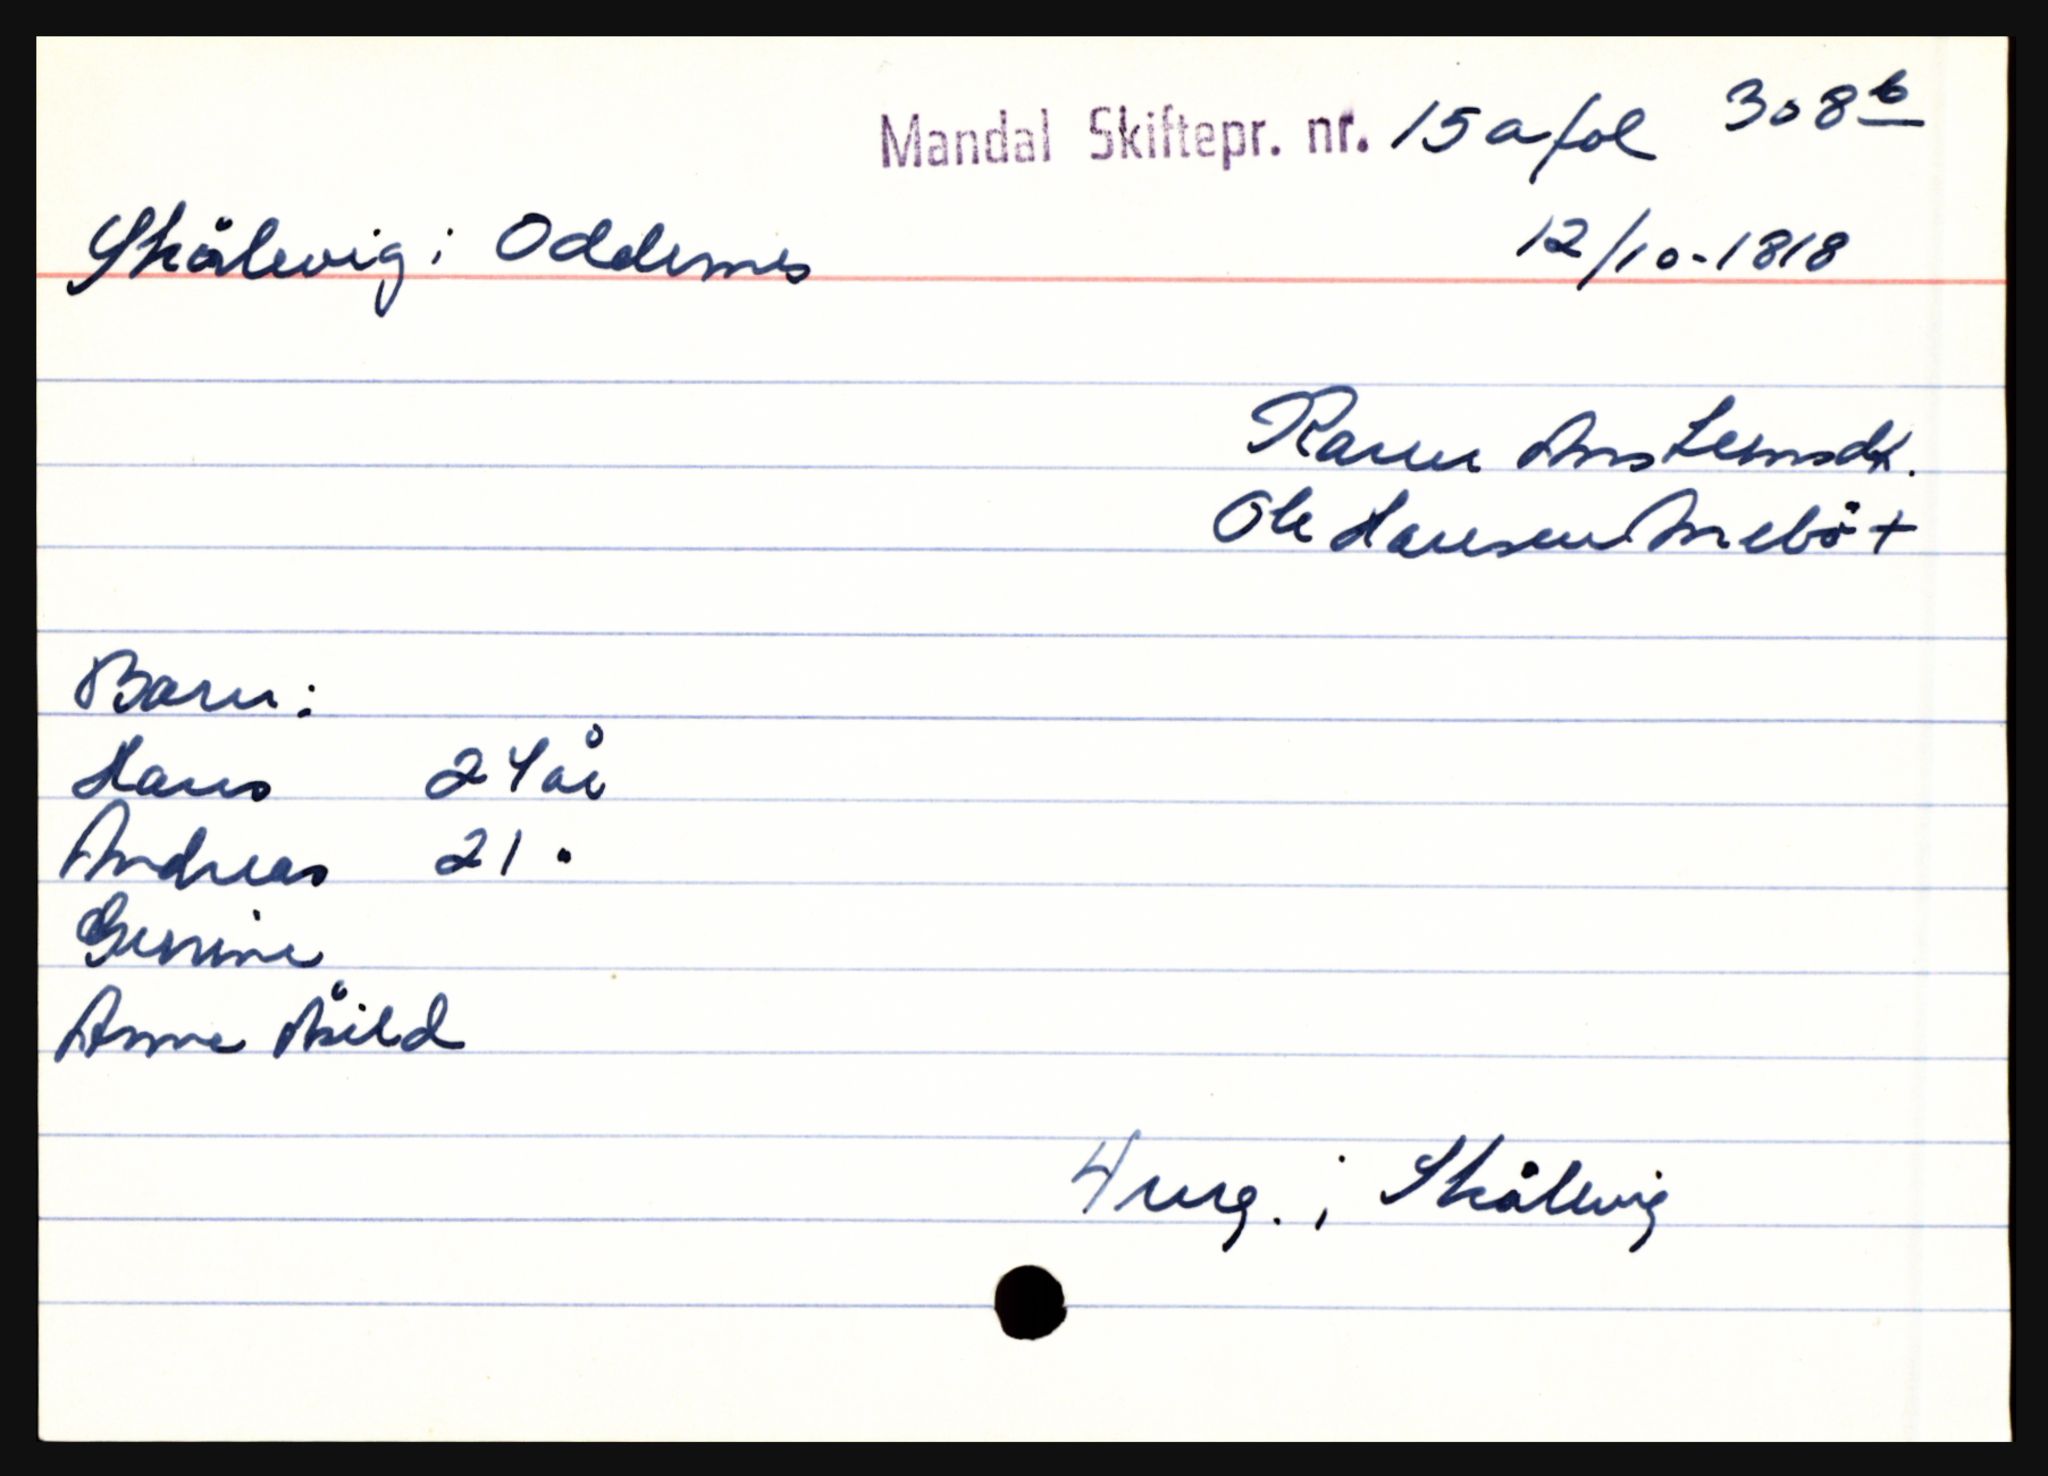 Mandal Skiftepr. nr. 15a fol 308b
Skålevig i Oddernes 12/10-1818
Karen Anstensdt.
Ole Hansen Anebö +
Barn:
Hans 24 år
Andreas 21 "
Gunine
Anne Åsild
4 eng. i Skålevig